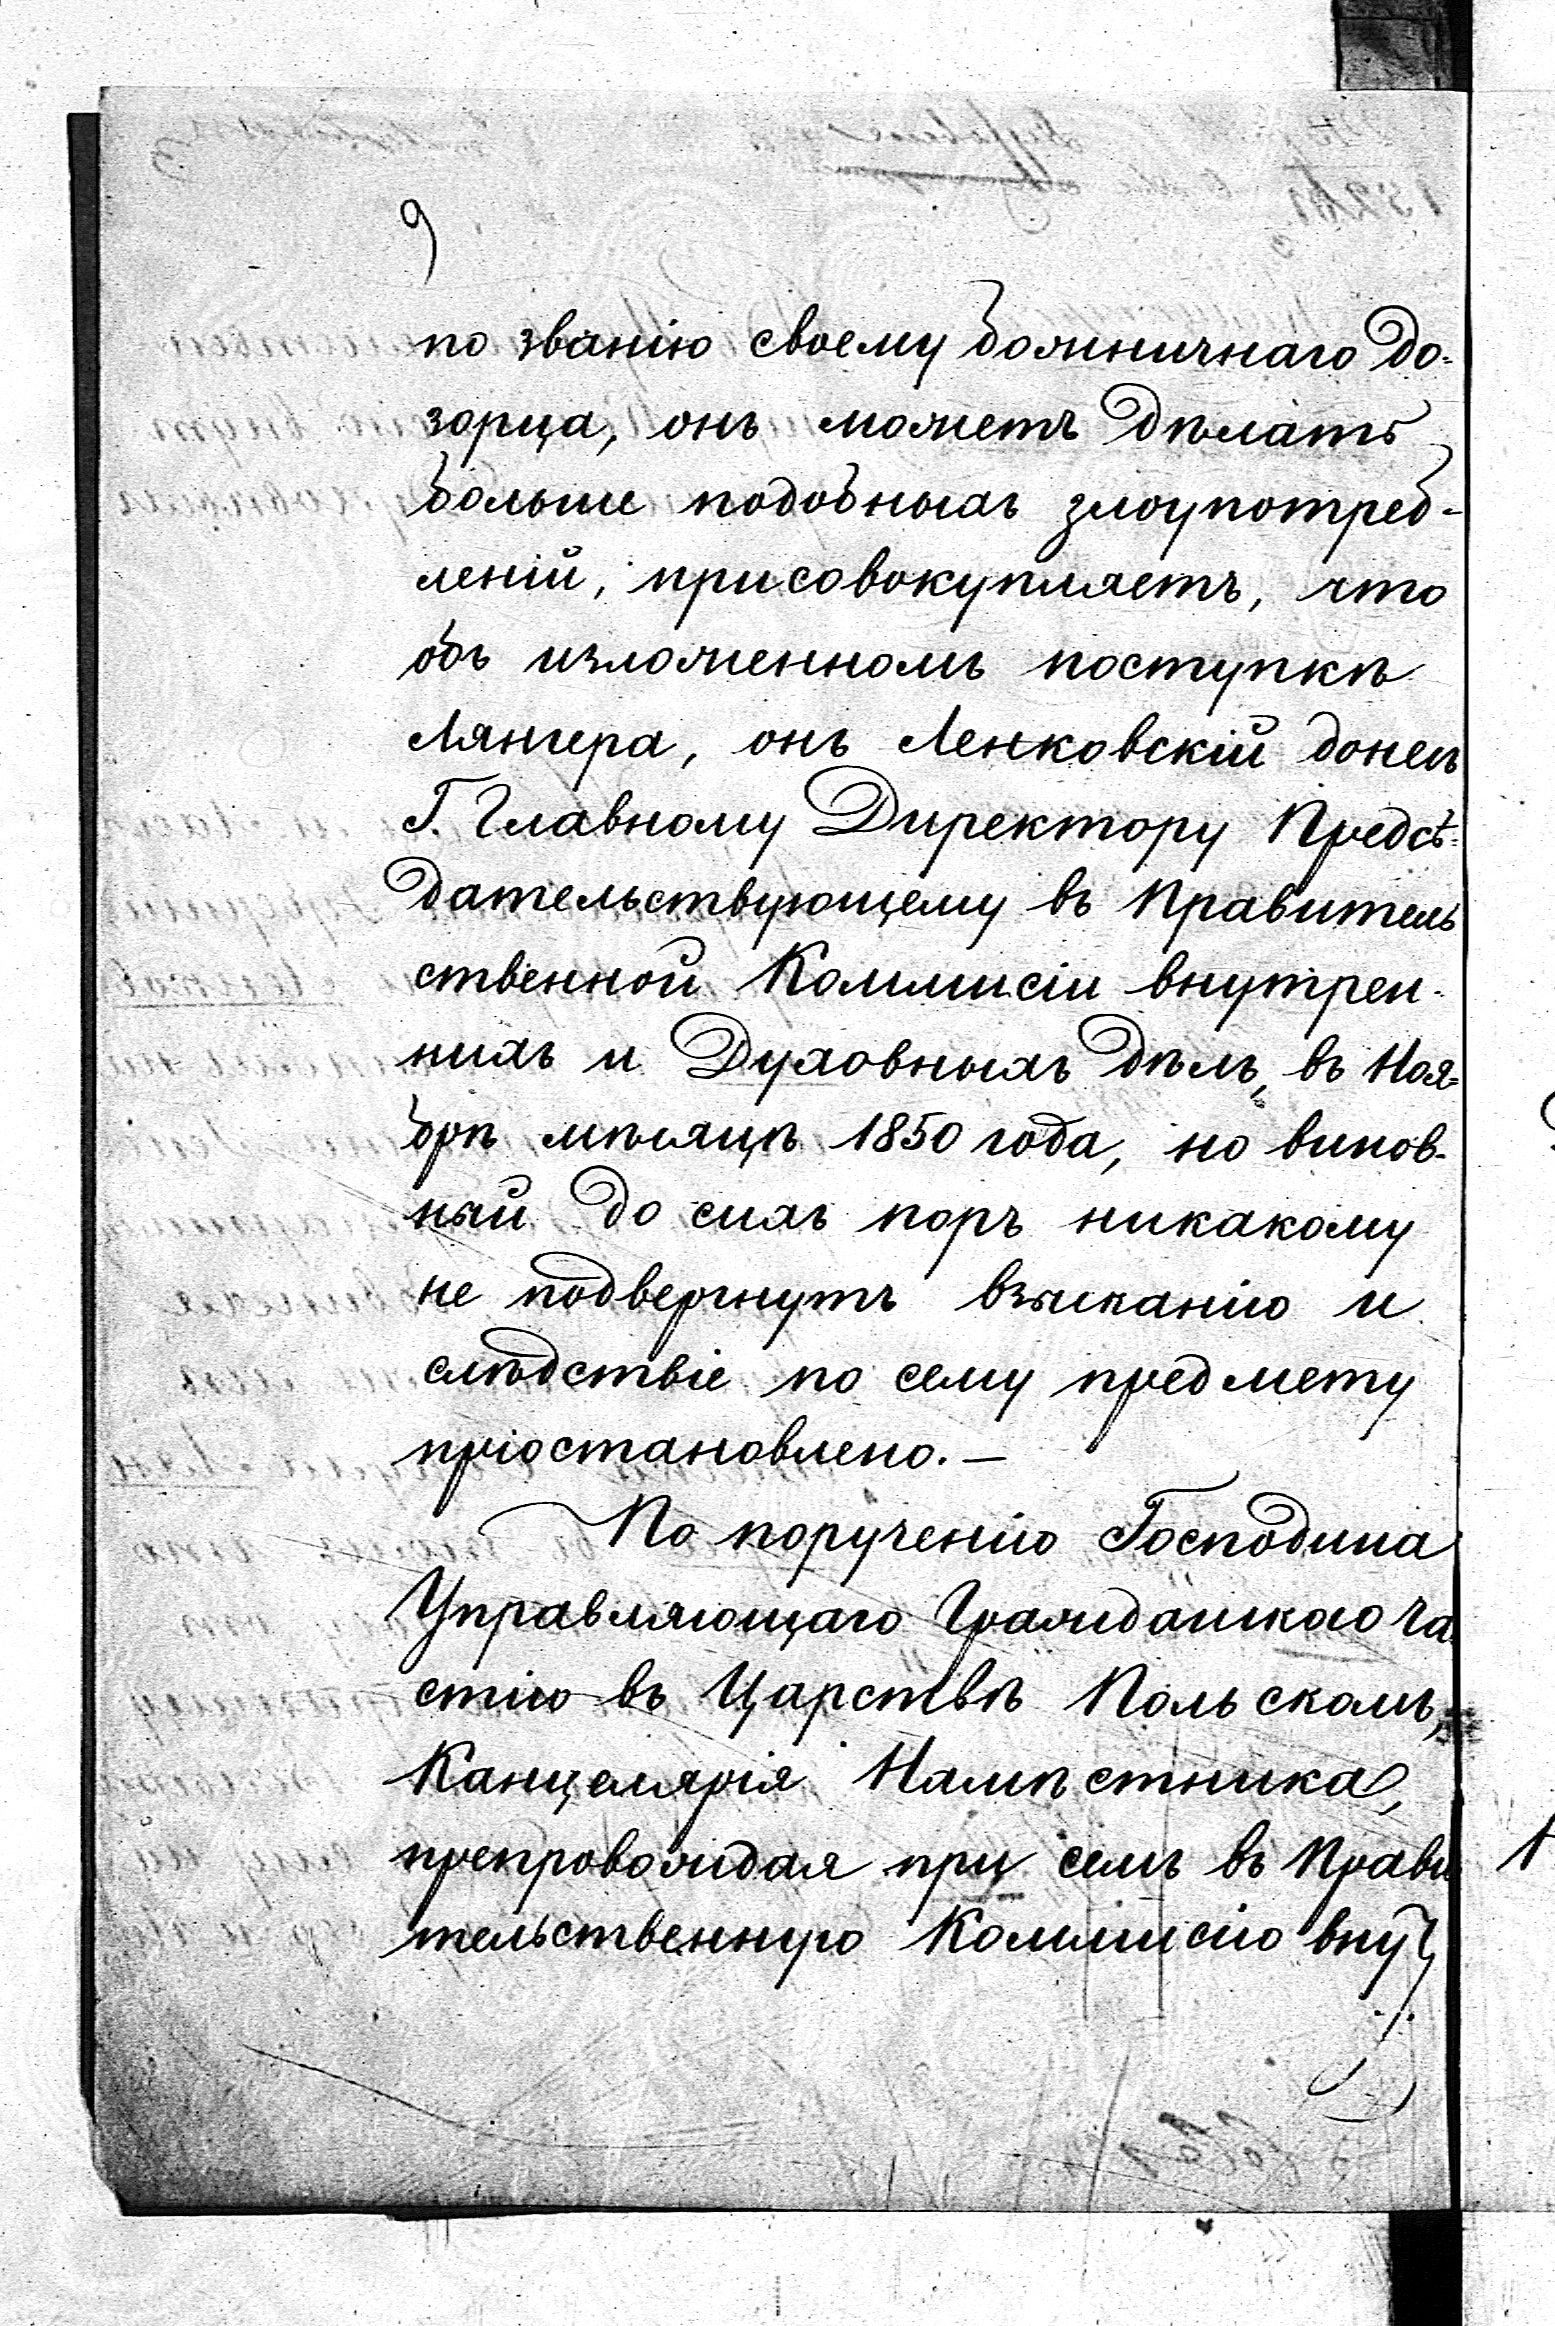 9
по званію своему божничнаго до=
зорца, онъ можетъ дѣлать
больше подобныхъ злоупотреб-
леній, присовокупляетъ, что
объ изложенномъ поступкѣ
Лянгера, онъ Ленковскій донесъ
Г. Главному Директору Предсѣ=
дательствующему въ Правитель
ственной Коммисіи внутрен-
нихъ и Духовныхъ дѣлъ, въ Ноя=
брѣ мѣсяцѣ 1850 года, но винов-
ный до сихъ поръ никакому
не подвергнутъ взысканію и
слѣдствіе по сему предмету
пріостановлено.—
По порученію Господина
Управляющаго Гражданскою ча
стію въ Царствѣ Польскомъ,
Канцелярія Намѣстника,
препровождая при семъ въ Прави
тельственную Коммисію вну